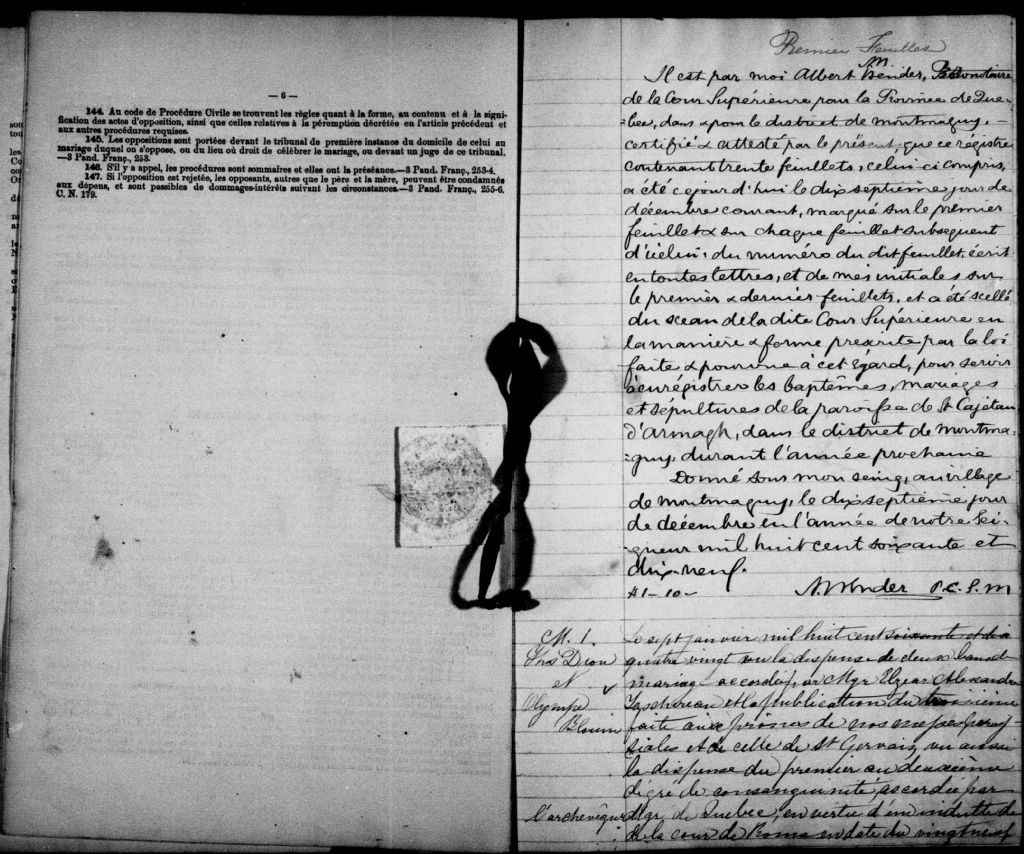 — 6 —
144. Au code de Procédure Civile se trouvent les règles quant à la forme, au contenu et à la signi-
fication des actes d'opposition, ainsi que celles relatives à la péremption décrétée en l'article précédent et
aux autres procédures requises.
145. Les oppositions sont portées devant le tribunal de première instance du domicile de celui au
mariage duquel on s'oppose, ou du lieu où droit de célébrer le mariage, ou devant un juge de ce tribunal.
—3 Pand. Franç., 253.
146. S'il y a appel, les procédures sont sommaires et elles ont la préséance.—3 Pand. Franç., 253-4.
147. Si l'opposition est rejetée, les opposants, autres que le père et la mère, peuvent être condamnés
aux dépens, et sont passibles de dommages-intérêts suivant les circonstances.—3 Pand. Franç., 255-6.
C. N. 179.
Premier Feuillet
Il est par moi Albert M Bender,
de la Cour Supérieure pour la Province de Qué-
bec, dans & pour le district de Montmagny,
certifié & attesté par le présent, que ce régistre
contenant trente feuillets, celui-ci compris,
a été ce jour d'hui le dix septième jour de
décembre courant, marqué sur le premier
feuillet & sur chaque feuillet subsequent
d'icelui, du numéro du dit feuillet, écrit
en toutes lettres, et de mes initiales sur
le premier & dernier feuillets, et a été scellé
du sceau de la dite Cour Supérieure en
la manière & forme prescrite par la loi
faite & pourvue à cet égard, pour servir
à enrégistrer les baptêmes, mariages
et sépultures de la paroisse de St Cajetan
d'Armagh, dans le district de Montma-
gny, durant l'année prochaine
Donné sous mon seing, au village
de Montmagny, le dix septième jour
de décembre en l'année de notre Sei-
gneur mil huit cent soixante et
dix-neuf.
$1-10- A. M Bender P.C.S.M
M. 1.
Ths Dion
et
Olympe
Blouin
Le sept janvier mil huit cent soixante et dix
quatre vingt vu la dispense de deux bans de
mariage accordée par Mgr Elzear Alexandre
Taschereau et la publication du troisième
faite aux prônes de nos messes parois-
siales et de celle de St Gervais, vu aussi
la dispense du premier au deuxième
dégré de consanguinité accordée par
l'archevêque Mgr de Quebec, en vertu d'un indulte de
de la cour de Rome en date du vingt neuf